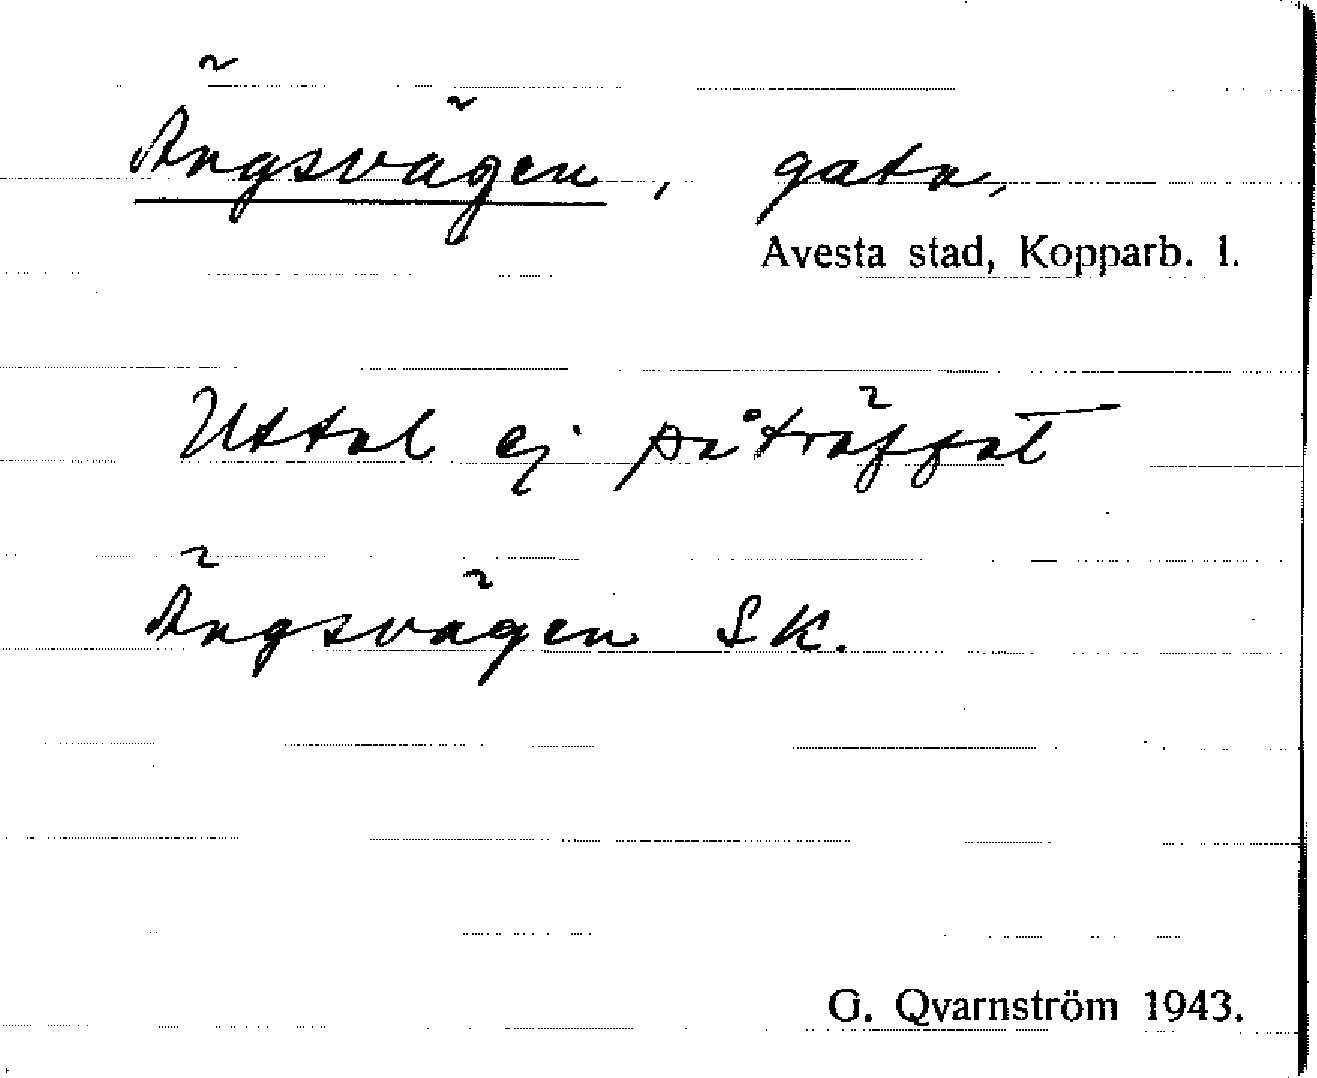 Ängsvägen, gata,
Avesta stad, Kopparb. l.
Uttal ej påträffat
Ängsvägen SK.
G. Qvarnström 1943.